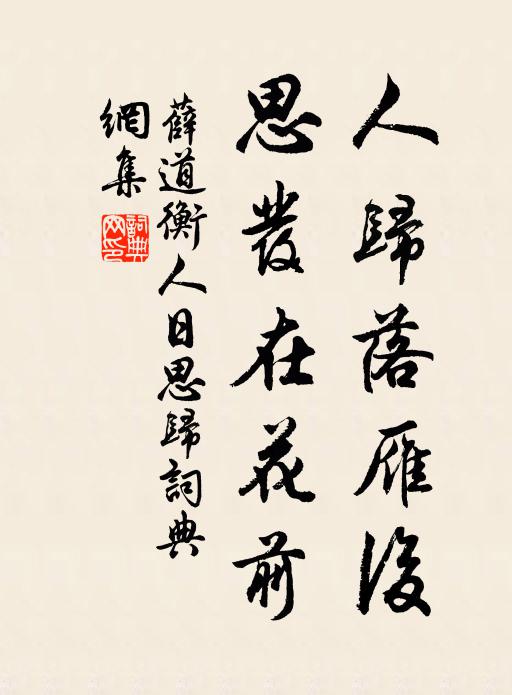 人歸落雁後
思發在花前
薛道衡人日思歸詞典
網集
詞典
网印